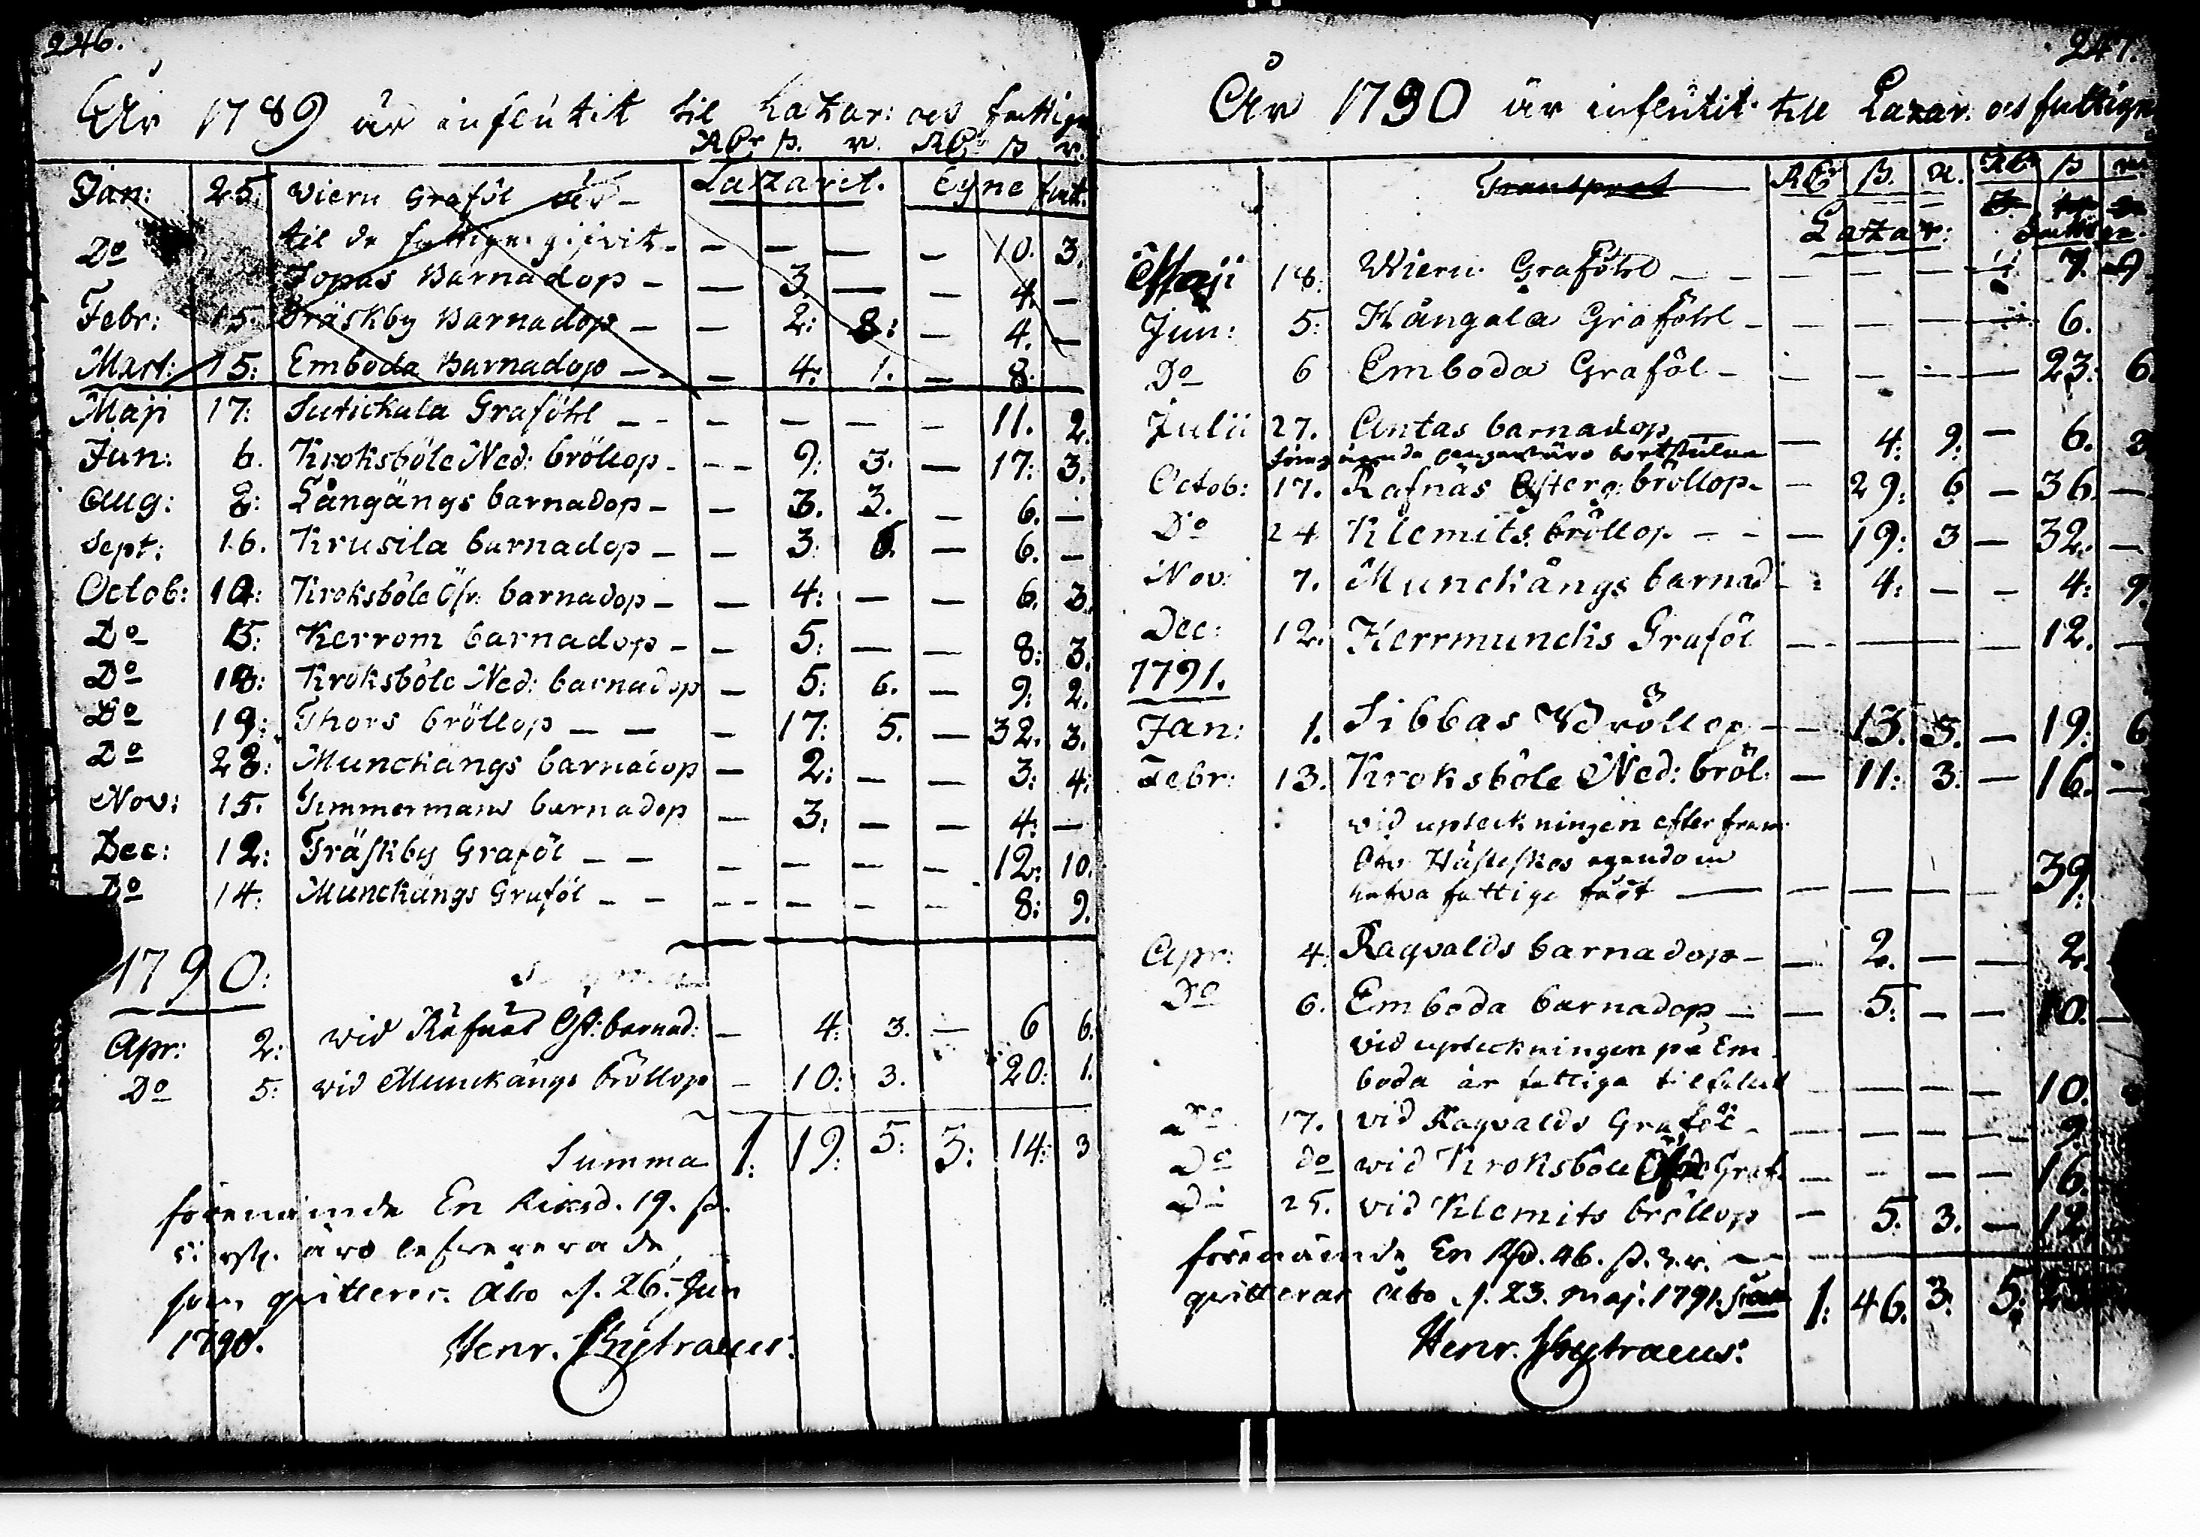 246.
År 1789 är influtit til Lazar: och fattige
RDr ß. r. RDr ß r.
Lazaret. Egne fat.
Jan: 25: Wieru Graföl
Do til de fattige gifvit - - - - 10. 3.
Jopas Barnadop - - 3. - - 4. -
Febr: 15. Träskby Barnadop - - 2: 8: - 4. -
Mart: 15: Emboda Barnadop - - 4: 1. - 8.
Maji 17: Sutickala Graföhl - - - - - 11. 2.
Jun: 6. Kroksböle Ned: bröllop - - 9: 3. - 17: 3.
Aug: 8: Långängs barnadop - - 3. 3. - 6. -
Sept: 16. Krusila barnadop - - 3. 6. - 6. -
Octob: 10: Kroksböle Öfr: barnadop - - 4: - - 6. 3.
Do 15: Kerrom barnadop - - 5: - - 8: 3.
Do 18: Kroksböle Ned: barnadop - 5: 6. - 9: 2.
Do 19: Thors bröllop - - - 17: 5. - 32. 3.
Do 28: Munckängs barnadop - 2: - - 3: 4:
Nov: 15. Timmermans barnadop - 3: - - 4: -
Dec: 12: Träskby Graföl - - - - - - 12: 10.
Do 14: Munckängs Graföl - - - - - - 8: 9.
1790:
Apr: 2: wid Räfnäs Öst: barnad: - 4: 3. - 6 6.
Do 5: wid Munckängs bröllop - 10: 3. 20: 1.
Summa 1: 19: 5: 3: 14: 3
förenämde En Riksd. 19. ß.
5: rst. äro lefvererade
som qvitteres. Åbo d. 26. Jun
1790. Henr. Chytraeus.
247.
År 1790 är influtit till Lazar. och fattige
Transport RDr ß. r. RDr ß r.
Lazar: fattiga.
Maji 18. Wieru Graföhl - - - - - 7. 9
Jun: 5: Hångala Graföhl - - - - - 6.
Do 6 Emboda Graföl - - - - - 23: 6.
Julii 27. Antas barnadop - - 4: 9: - 6.
bortstulna
Octob: 17. Räfnäs Österg: bröllop - - 29: 6 - 36. -
Do 24 Klemits bröllop - - - 19: 3 - 32. -
Nov: 7. Munckängs barnad - 4: - - 4: 9.
Dec: 12. Herrmuncks Graföl - - - - - 12. -
1791.
Jan: 1. Sibbas Bröllop - - 13. 3. - 19: 6
Febr: 13. Kroksböle Ned: bröl: - 11: 3: - 16. -
wid upteckningen efter fram:
egendom
hafva fattiga fådt - - - - - 39.
Apr: 4. Ragvalds barnadop - - 2. - - 2.
Do 6. Emboda barnadop - - 5: - - 10. -
vid upteckningen på Em
boda är fattiga tilfallit - - - - 10.
Do 17. vid Ragvalds Graföl - - - - - 9.
Do do wid Kroksböle Öfr Graf. - - - - - 16.
Do 25. vid Klemits bröllop - 5. 3. - 12.
förenämde En Rsd. 46. ß. 3. r. -
qvitteras Åbo d. 23. maj. 1791. 1: 46. 3: 5:
Henr. Chytraeus: